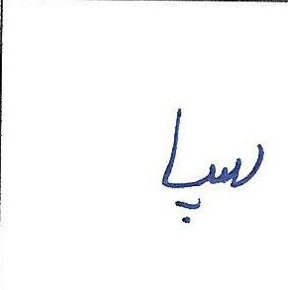 سپا